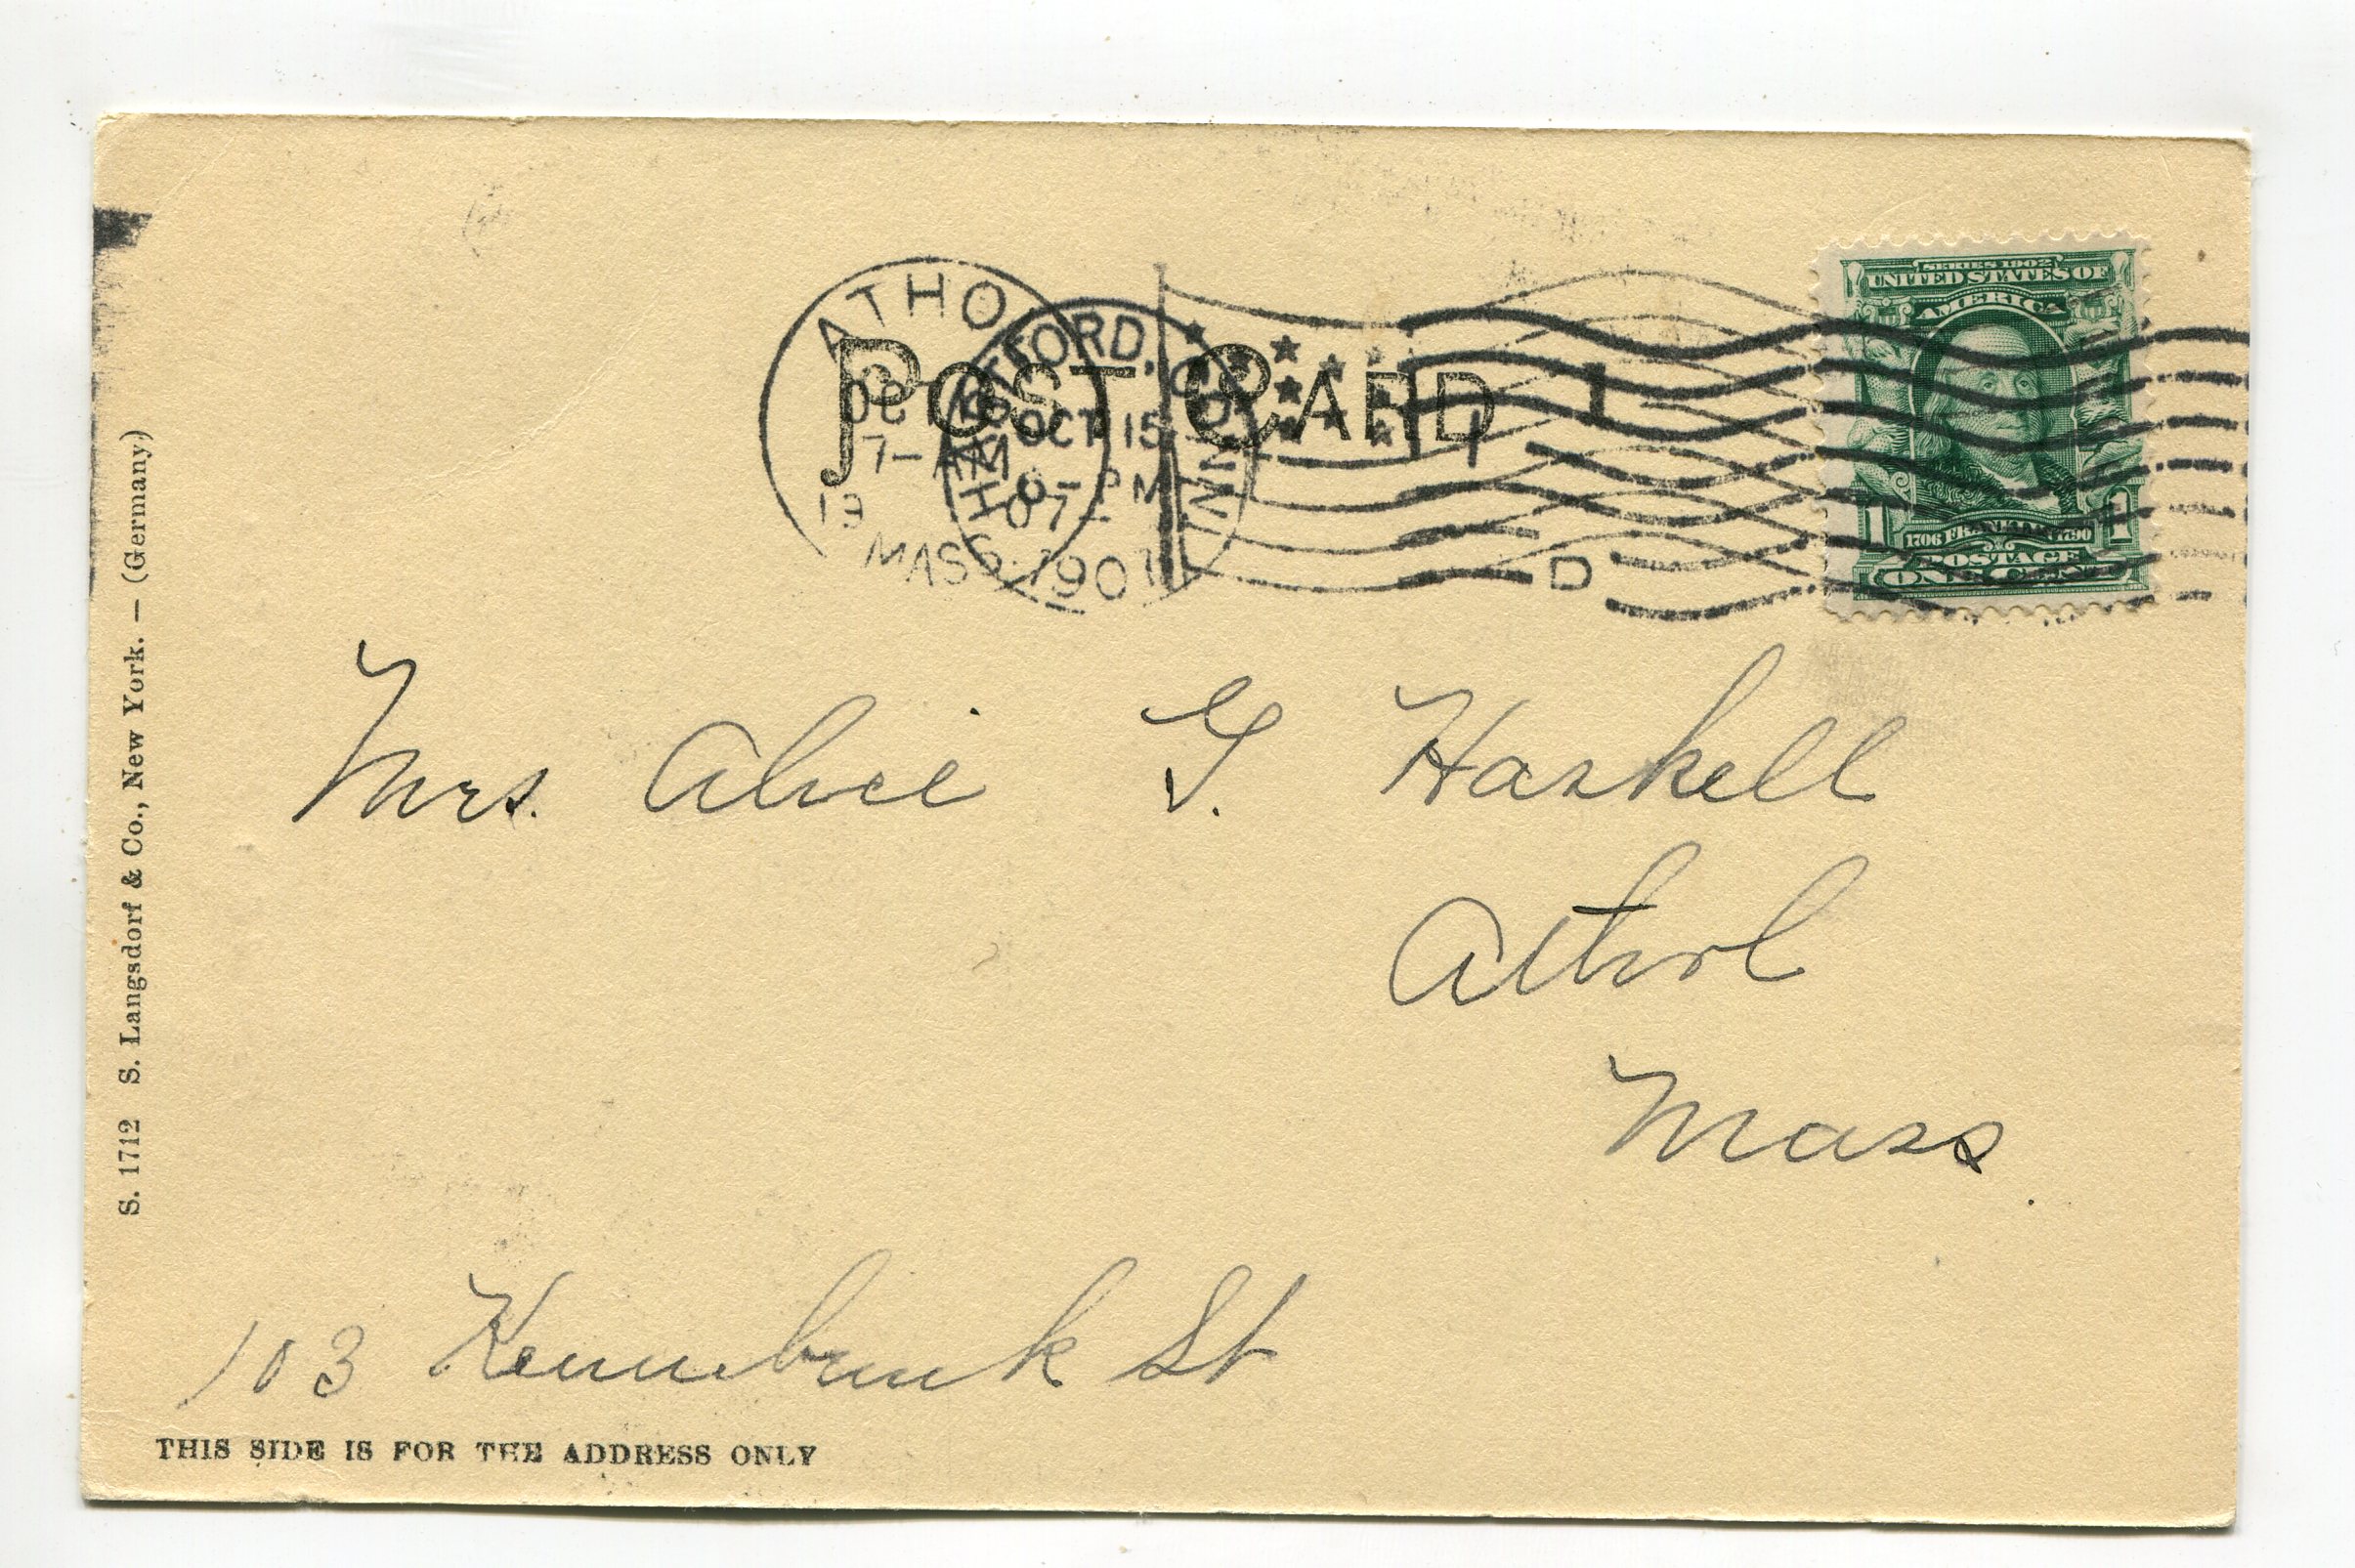 ATHO
OCT
7-AM
13
MASS. 1907
HARTFORD, CONN.
OCT 15
6-PM
07
POST CARD
1
D
SERIES 1902
UNITED STATES OF
AMERICA
1706 FRANKLIN 1790
1 1
POSTAGE
ONE CENT
Mrs. Alice G. Haskell
Athol
Mass.
103 Kennebunk St
THIS SIDE IS FOR THE ADDRESS ONLY
S. 1712 S. Langsdorf & Co., New York. — (Germany.)